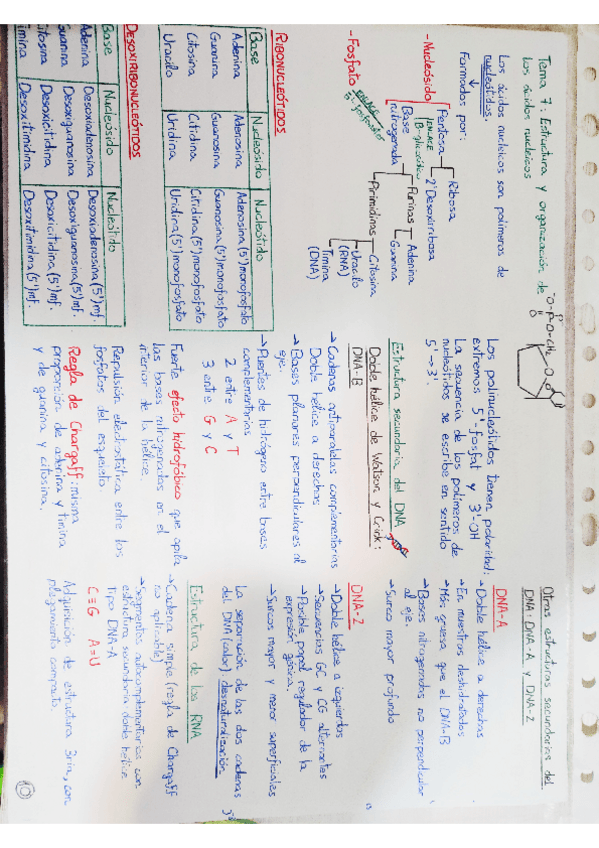 Tema 7: Estructura y organización de
los ácidos nucleicos
Los ácidos nucleicos son polímeros de
nucleótidos.
Formados por:
-Nucleósido
Pentosa
Ribosa
2'Desoxirribosa
ENLACE
β-glucosídico
Base
nitrogenada
Purinas
Adenina
Guanina
Pirimidinas
Citosina
Uracilo
(RNA)
Timina
(DNA)
-Fosfato
ENLACE
5'-fosfoéster
RIBONUCLEÓTIDOS
Base Nucleósido Nucleótido
Adenina Adenosina Adenosina(5')monofosfato
Guanina Guanosina Guanosina(5')monofosfato
Citosina Citidina Citidina(5')monofosfato
Uracilo Uridina Uridina(5')monofosfato
DESOXIRIBONUCLEÓTIDOS
Base Nucleósido Nucleótido
Adenina Desoxiadenosina Desoxiadenosina(5')mf.
Guanina Desoxiguanosina Desoxiguanosina(5')mf.
Citosina Desoxicitidina Desoxicitidina(5')mf.
Timina Desoxitimidina Desoxitimidina(5')mf.
Los polinucleótidos tienen polaridad:
extremos 5'-fosfat y 3'-OH
La secuencia de los polímeros de
nucleótidos se escribe en sentido
5'→3'.
Estructura secundaria del DNA
Doble hélice de Watson y Crick:
DNA-B
→Cadenas antiparalelas complementarias
Doble hélice a derechas
→Bases planares perpendiculares al
eje.
→Puentes de hidrógeno entre bases
complementarias
2 entre A y T
3 entre G y C
Fuerte efecto hidrofóbico que apila
las bases nitrogenadas en el
interior de la hélice.
Repulsión electrostática entre los
fosfatos del esqueleto.
Regla de Chargaff: misma
proporción de adenina y timina
y de guanina y citosina.
Otras estructuras secundarias del
DNA: DNA-A y DNA-Z
DNA-A
→Doble hélice a derechas
→En muestras deshidratadas
→Más gruesa que el DNA-B
→Bases nitrogenadas no perpendicular
al eje.
→Surco mayor profundo
DNA-Z
→Doble hélice a izquierdas
→Secuencias GC y CG alternantes
→Posible papel regulador de la
expresión génica.
→Surcos mayor y menor superficiales
La separación de las dos cadenas
del DNA (calor) desnaturalización.
Estructura de los RNA
→Cadena simple (regla de Chargaff
no aplicable)
→Segmentos autocomplementarios con
estructura secundaria doble hélice
tipo DNA-A
C≡G A=U
Adquisición de estructura 3ria, con
plegamiento complejo.
10